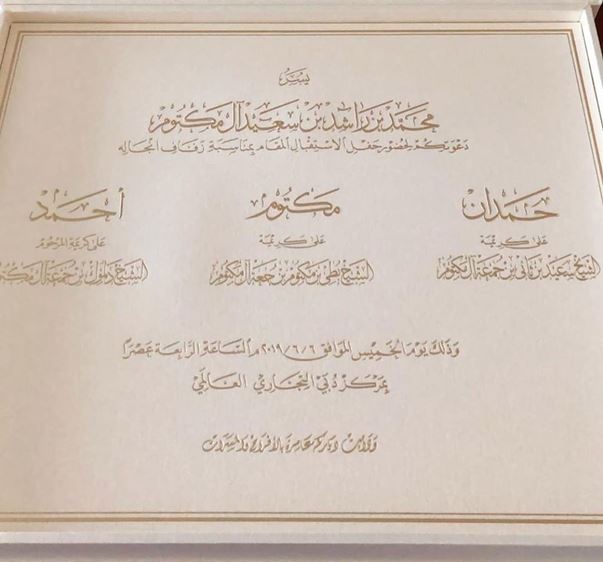 يسر
محمد بن راشد بن سعيد آل مكتوم
دعوتكم لحضور حفل الاستقبال المقام بمناسبة زفاف أنجاله
حمدان مكتوم أحمد
على كريمة على كريمة على كريمة المرحوم
الشيخ سعيد بن ثاني بن جمعة آل مكتوم الشيخ بطي بن مكتوم بن جمعة آل مكتوم الشيخ دلموك بن جمعة آل مكتوم
وذلك يوم الخميس الموافق ٢٠١٩/٦/٦م الساعة الرابعة عصرا
بمركز دبي التجاري العالمي
ودامت دياركم عامرة بالأفراح والمسرات